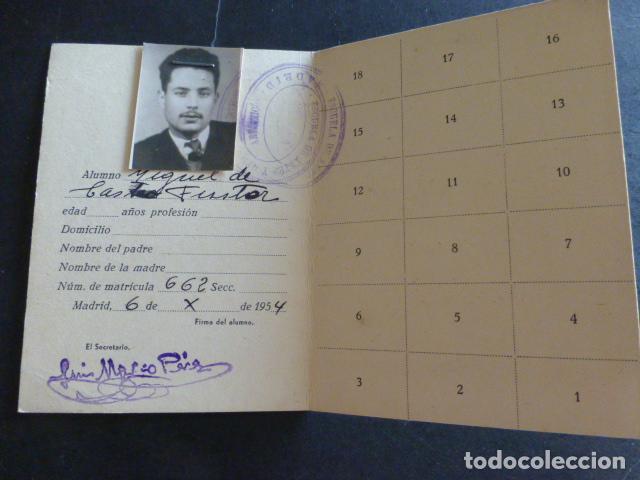 MADRID
ESCUELA DE
Alumno Miguel de
Castro Fustor
edad años profesión
Domicilio
Nombre del padre
Nombre de la madre
Núm. de matrícula 662 Secc.
Madrid, 6 de X de 1954
Firma del alumno.
El Secretario,
Luis Mateo Pérez
18 17 16
15 14 13
12 11 10
9 8 7
6 5 4
3 2 1
todocoleccion.net